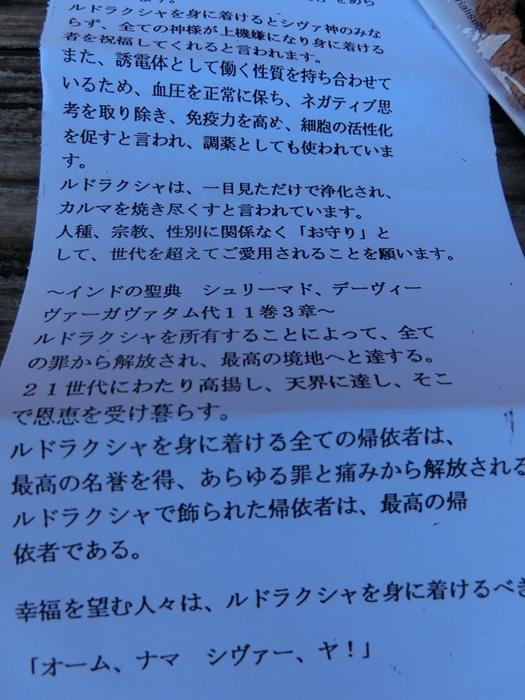 ルドラクシャを身に着けるとシヴァ神のみな
らず、全ての神様が上機嫌になり身に着ける
者を祝福してくれると言われます。
また、誘電体として働く性質を持ち合わせて
いるため、血圧を正常に保ち、ネガティブ思
考を取り除き、免疫力を高め、細胞の活性化
を促すと言われ、調薬としても使われていま
す。
ルドラクシャは、一目見ただけで浄化され、
カルマを焼き尽くすと言われています。
人種、宗教、性別に関係なく「お守り」と
して、世代を超えてご愛用されることを願います。
～インドの聖典　シュリーマド、デーヴィー
ヴァーガヴァタム代１１巻３章～
ルドラクシャを所有することによって、全て
の罪から解放され、最高の境地へと達する。
２１世代にわたり高揚し、天界に達し、そこ
で恩恵を受け暮らす。
ルドラクシャを身に着ける全ての帰依者は、
最高の名誉を得、あらゆる罪と痛みから解放される
ルドラクシャで飾られた帰依者は、最高の帰
依者である。
幸福を望む人々は、ルドラクシャを身に着けるべき
「オーム、ナマ　シヴァー、ヤ！」